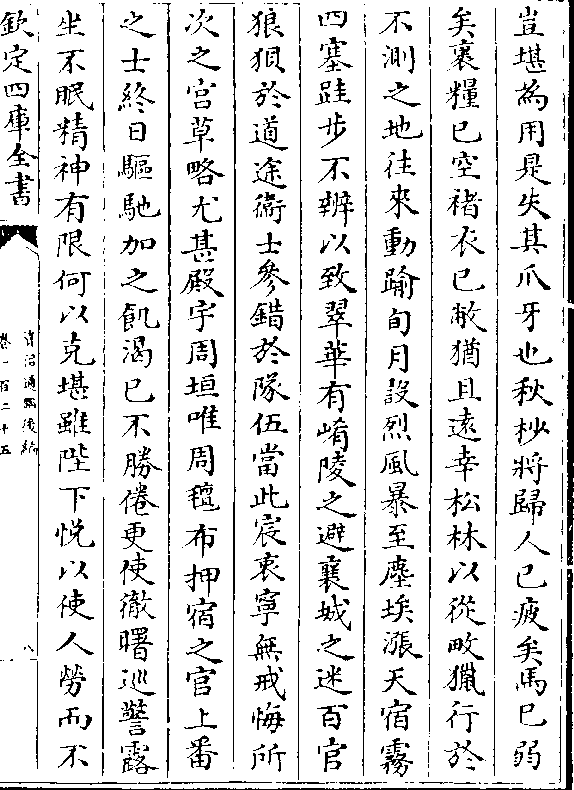 豈堪為用是失其爪牙也秋杪將歸人已疲矣馬已弱
矣裹糧已空褚衣已敝猶且遠幸松林以從畋獵行於
不測之地往來動踰旬月設烈風暴至塵埃漲天宿霧
四塞跬步不辨以致翠華有崤陵之避襄城之迷百官
狼狽於道途衞士參錯於隊伍當此宸衷寧無戒悔所
次之宫草略尤甚殿宇周垣唯周氊布押宿之官上番
之士終日驅馳加之飢渴已不勝倦更使徹曙巡警露
坐不眠精神有限何以克堪雖陛下悦以使人勞而不
欽定四庫全書
資治通鑑後編
卷一百二十五
八